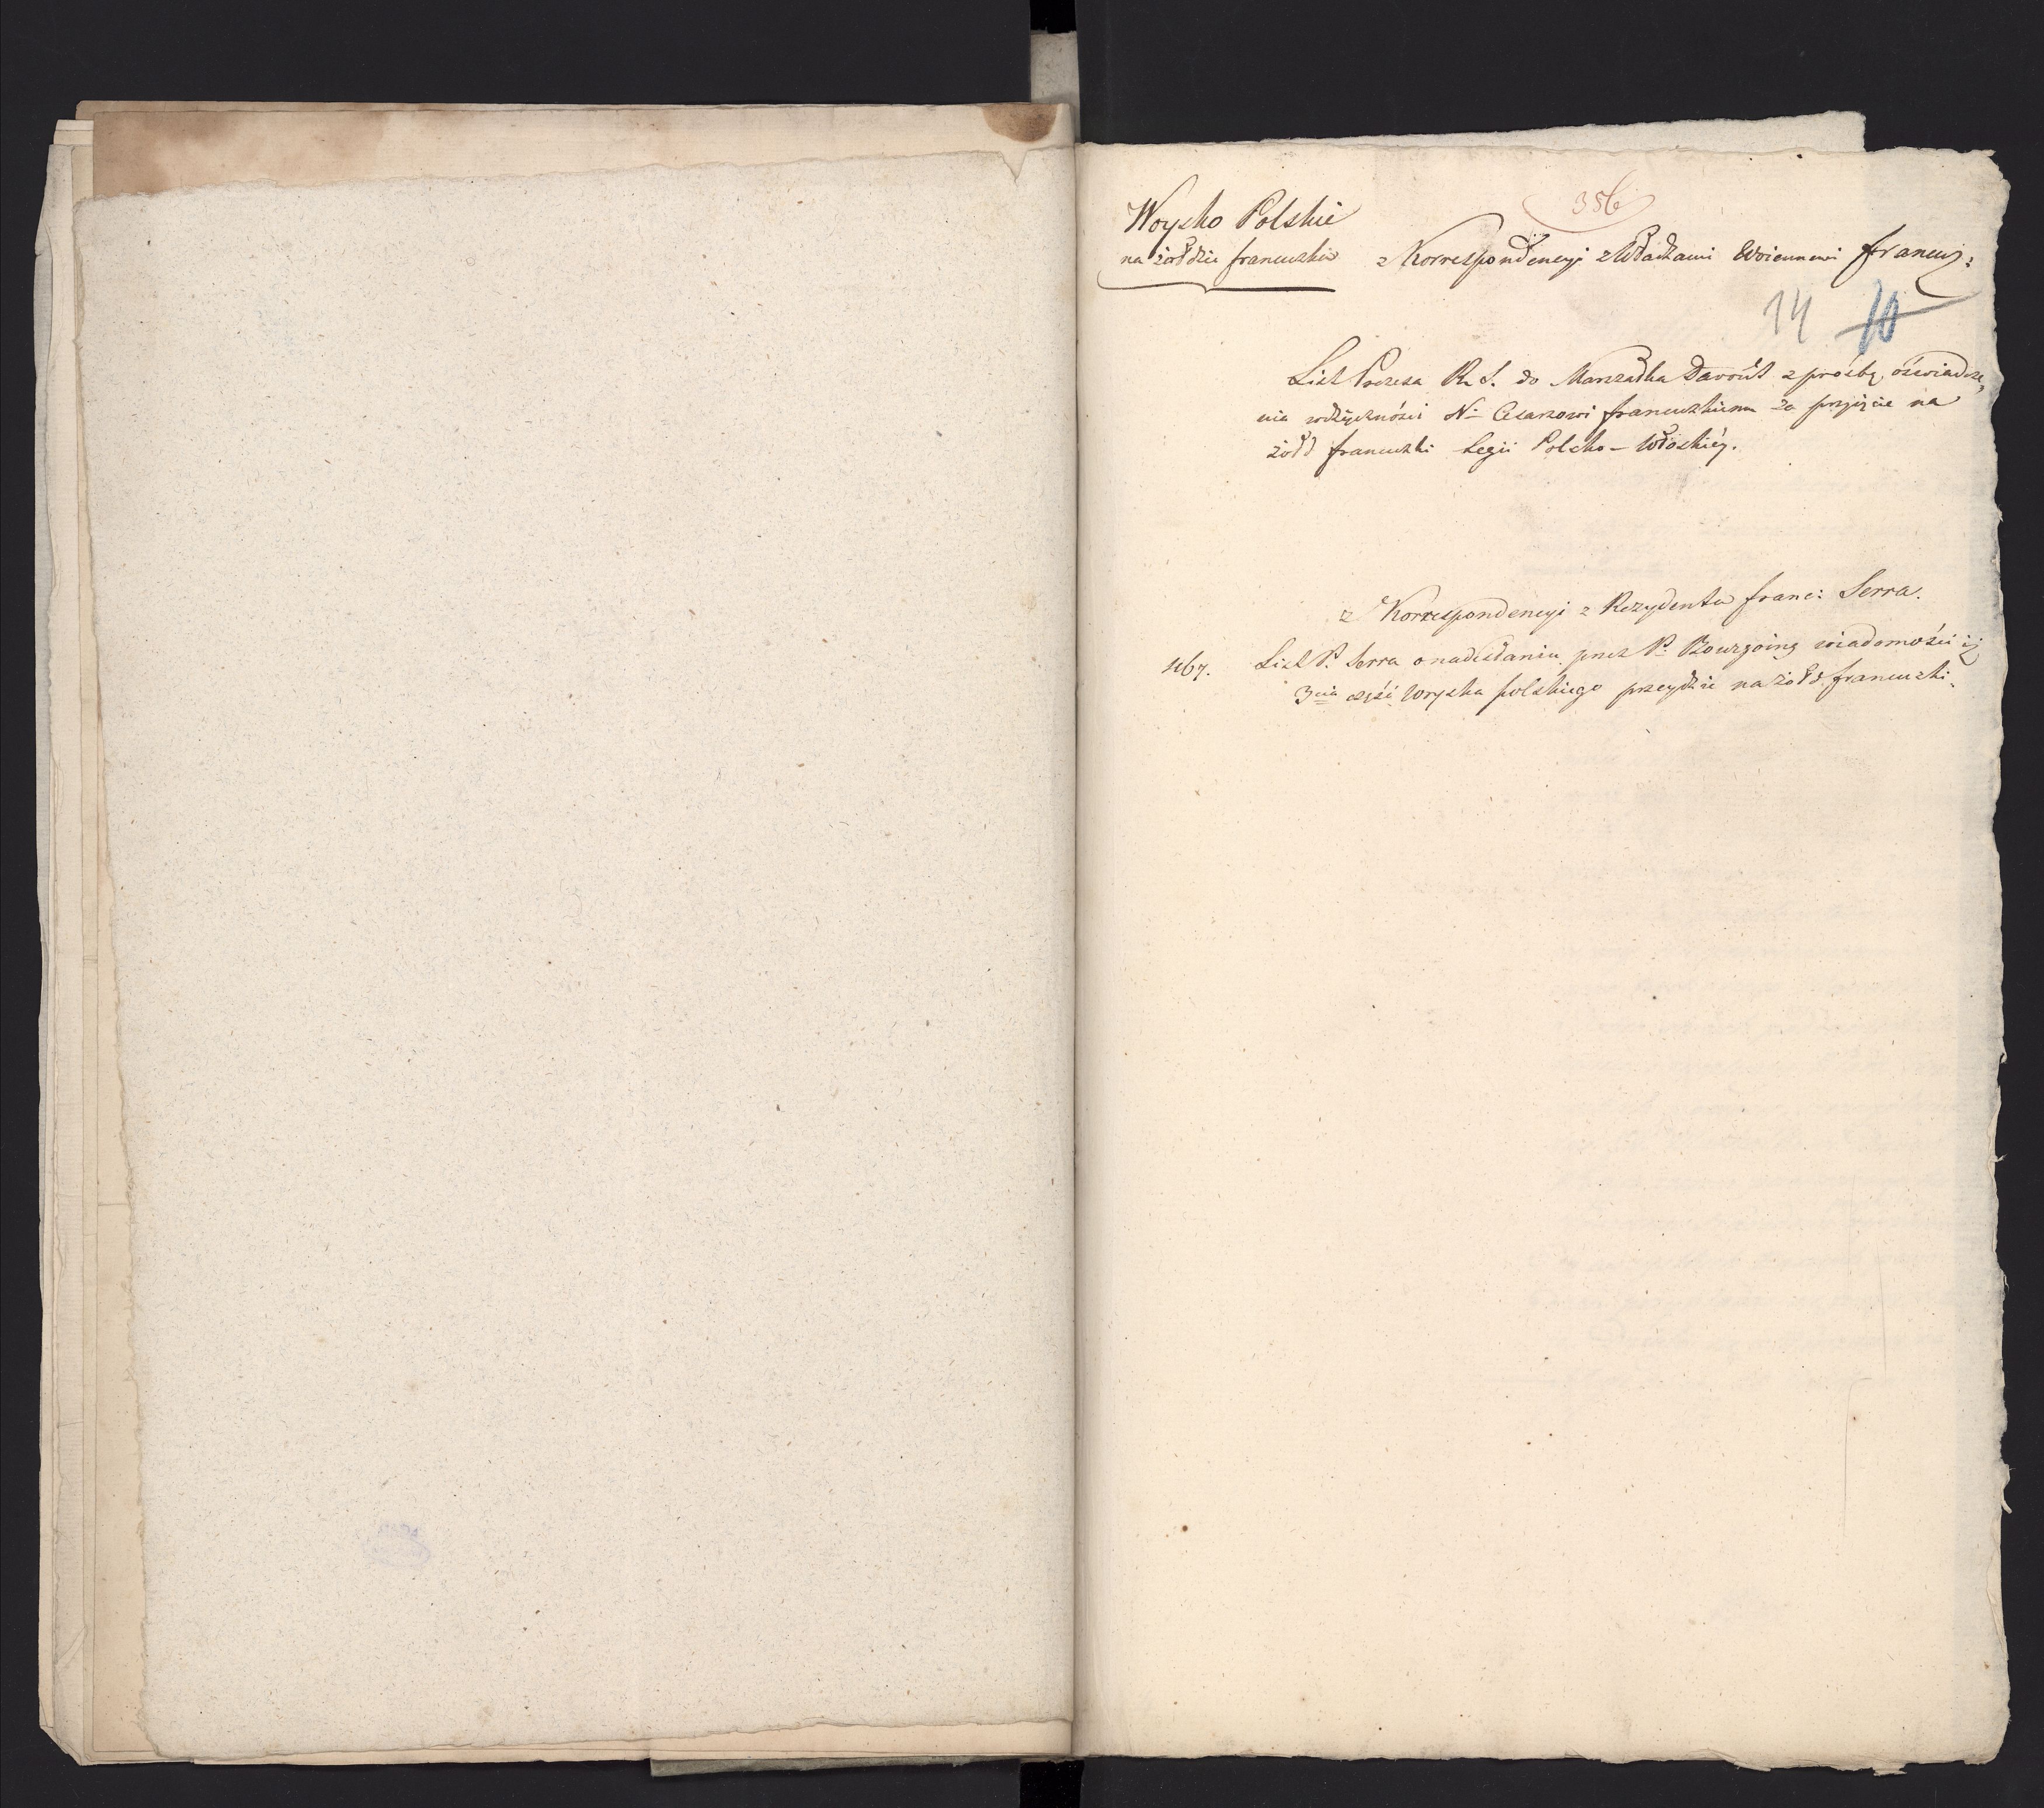 356
Woysko Polskie
na żołdzie francuzkim z Korrespondencyi z Władzami Woiennemi francuz:
14 10
List Prezesa R. S. do Marszałka Davoût z prośbą oświadcze„
nia wdzięczności N. Cesarzowi francuzkiemu za przyięcie na
żołd francuzki Legii Polsko-Włoskiéy.
z Korrespondencyi z Rezydentem franc: Serra.
1167. List P. Serra o nadesłaniu przez P. Bourgoing wiadomości iż
3cia część Woyska polskiego przeydzie na żołd francuzki.